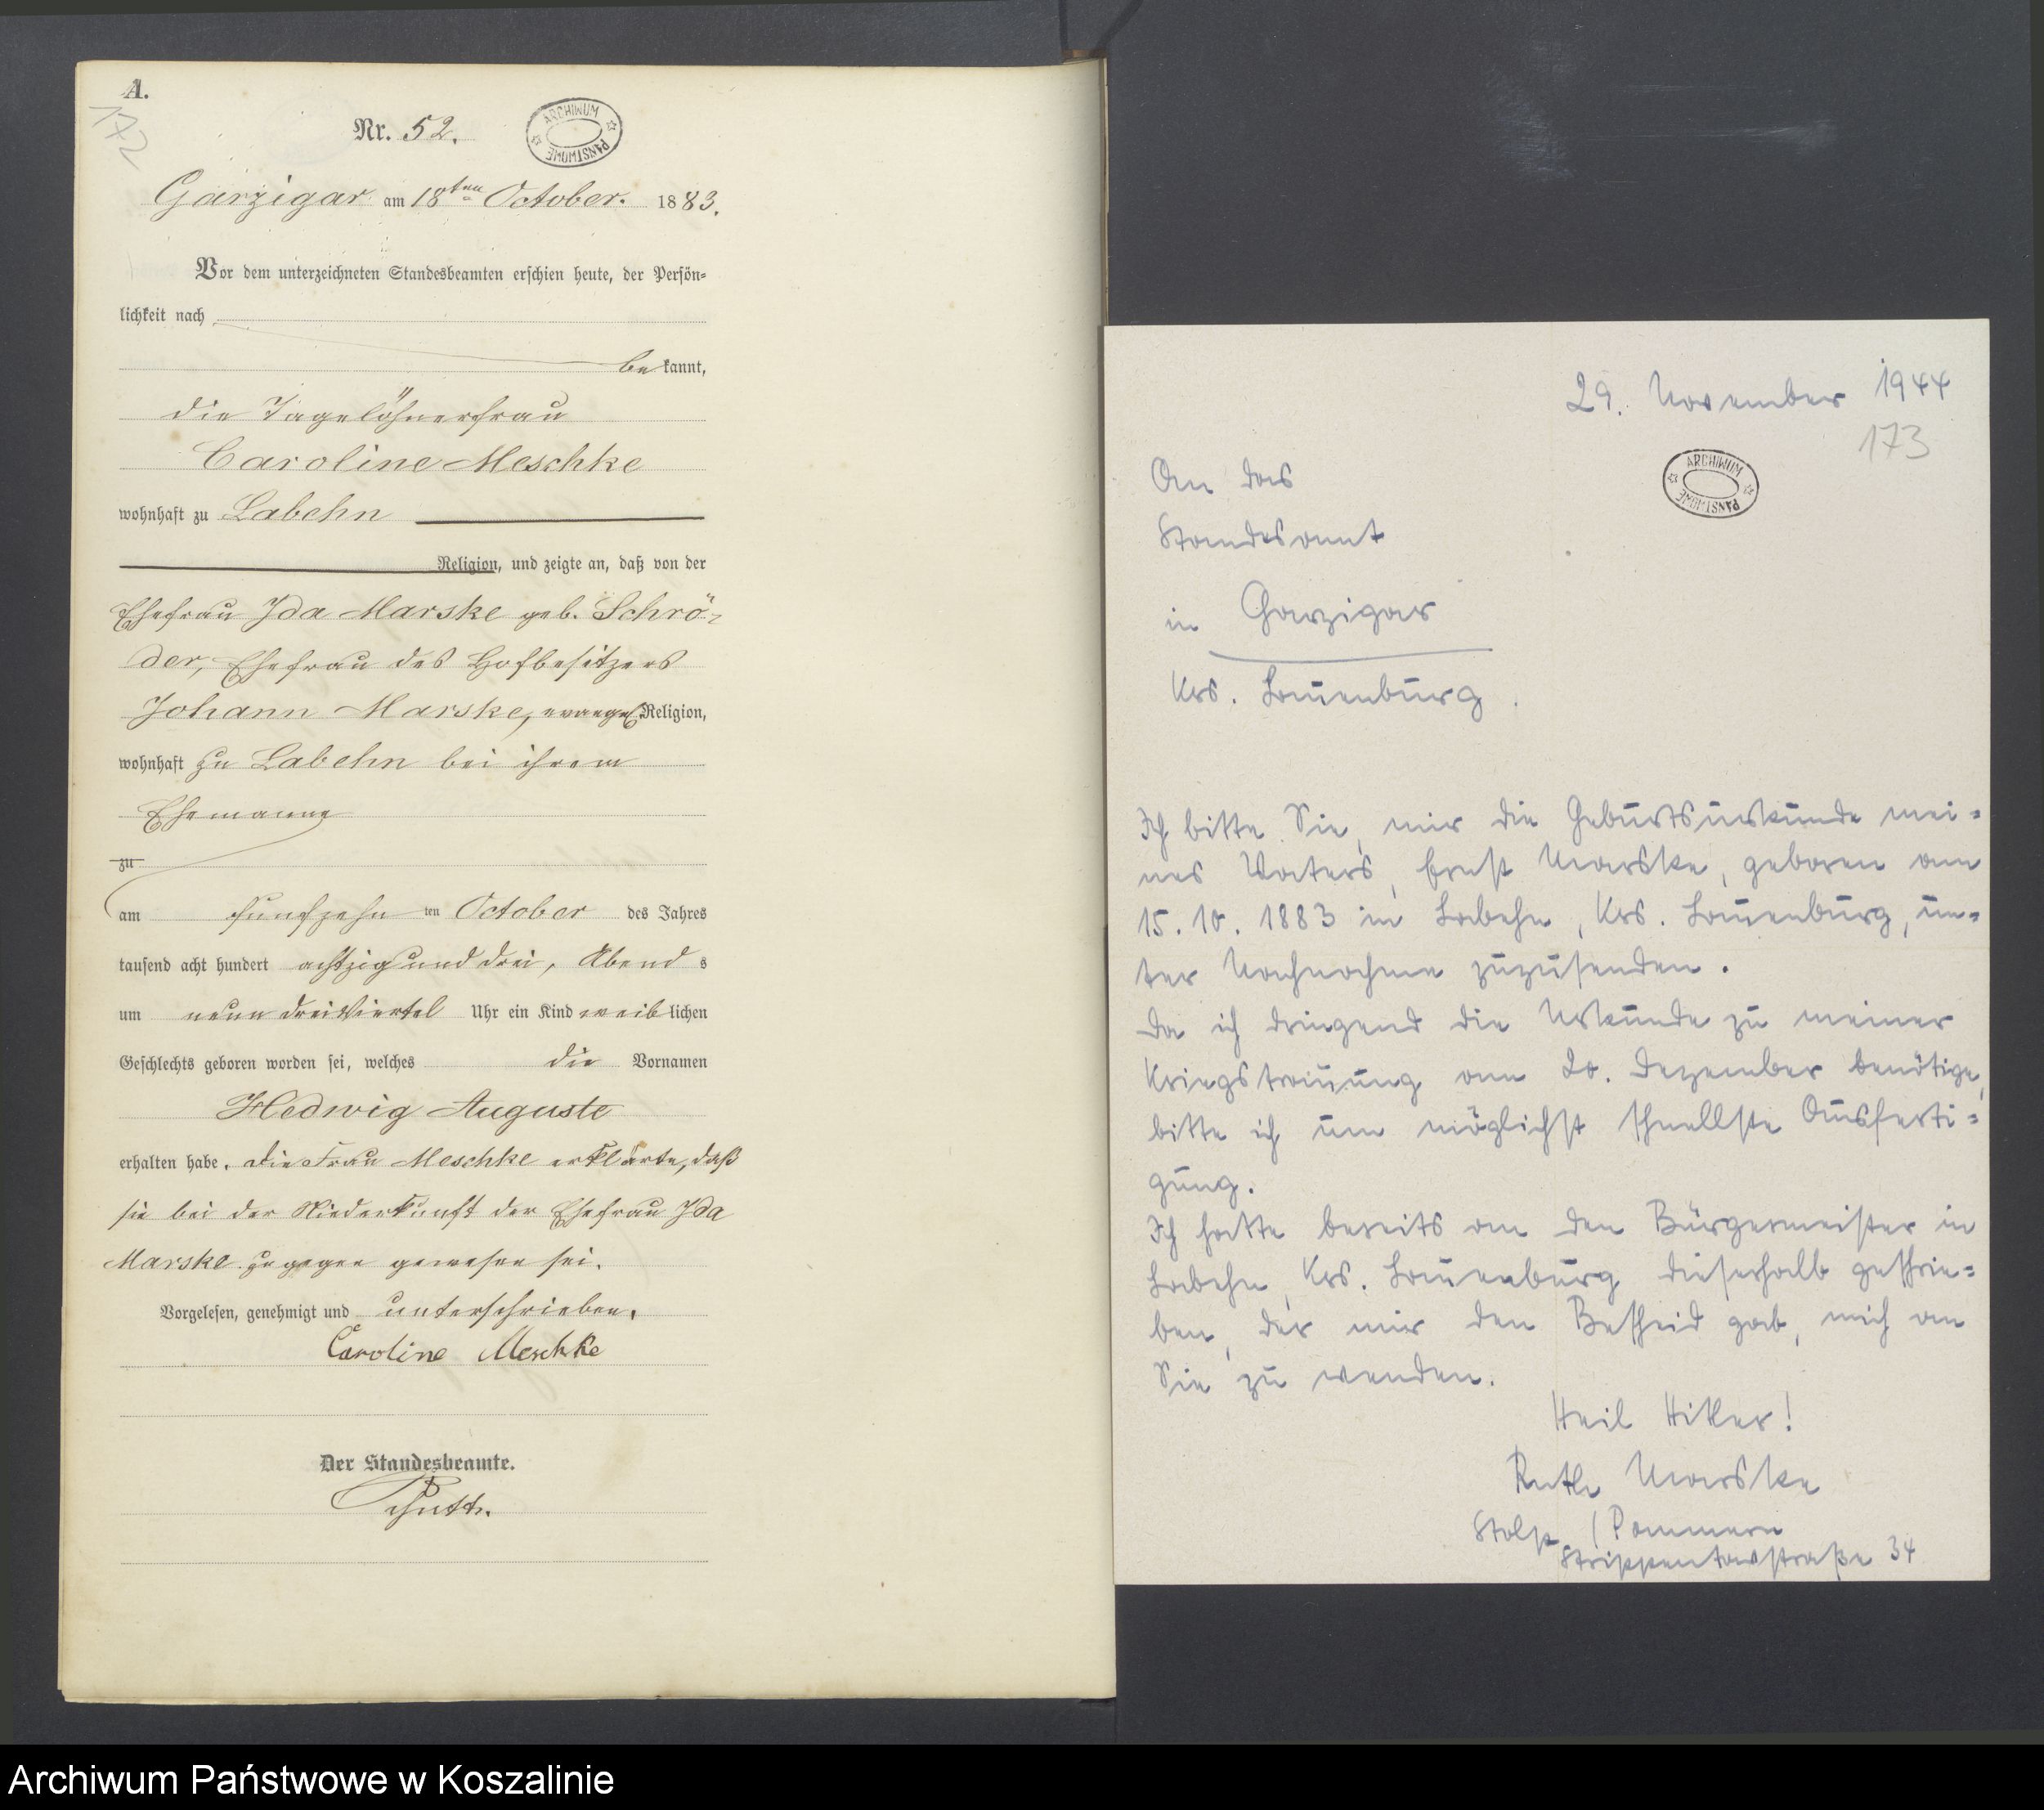 A.
172
Nr. 52.
ARCHIWUM PAŃSTWOWE
Garzigar am 18ten October. 1883.
Vor dem unterzeichneten Standesbeamten erschien heute, der Persön-
lichkeit nach
bekannt,
die Tagelöhnerfrau
Caroline Meschke
wohnhaft zu Labehn
Religion, und zeigte an, daß von der
Ehefrau Ida Marske geb. Schrö-
der, Ehefrau des Hofbesitzers
Johann Marske, evangel. Religion,
wohnhaft zu Labehn bei ihrem
Ehemanne
zu
am fünfzehn ten October des Jahres
tausend acht hundert achtzig und drei, Abends
um neun dreiviertel Uhr ein Kind weiblichen
Geschlechts geboren worden sei, welches die Vornamen
Hedwig Auguste
erhalten habe. Die Frau Meschke erklärte, daß
sie bei der Niederkunft der Ehefrau Ida
Marske zugegen gewesen sei.
Vorgelesen, genehmigt und unterschrieben.
Caroline Meschke
Der Standesbeamte.
29. November 1944
173
ARCHIWUM PAŃSTWOWE
An das
Standesamt
in Garzigar
Krs. Lauenburg.
Ich bitte Sie, mir die Geburtsurkunde mei-
nes Vaters, Ernst Marske, geboren am
15.10.1883 in Labehn, Krs. Lauenburg, un-
ter Nachnahme zuzusenden.
Da ich dringend die Urkunde zu meiner
Kriegstrauung am 20. Dezember benötige,
bitte ich um möglichst schnellste Ausferti-
gung.
Ich hatte bereits an den Bürgermeister in
Labehn, Krs. Lauenburg dieserhalb geschrie-
ben, der mir den Bescheid gab, mich an
Sie zu wenden.
Heil Hitler!
Ruth Marske
Stolp / Pommern
Strippentowstraße 34
Archiwum Państwowe w Koszalinie